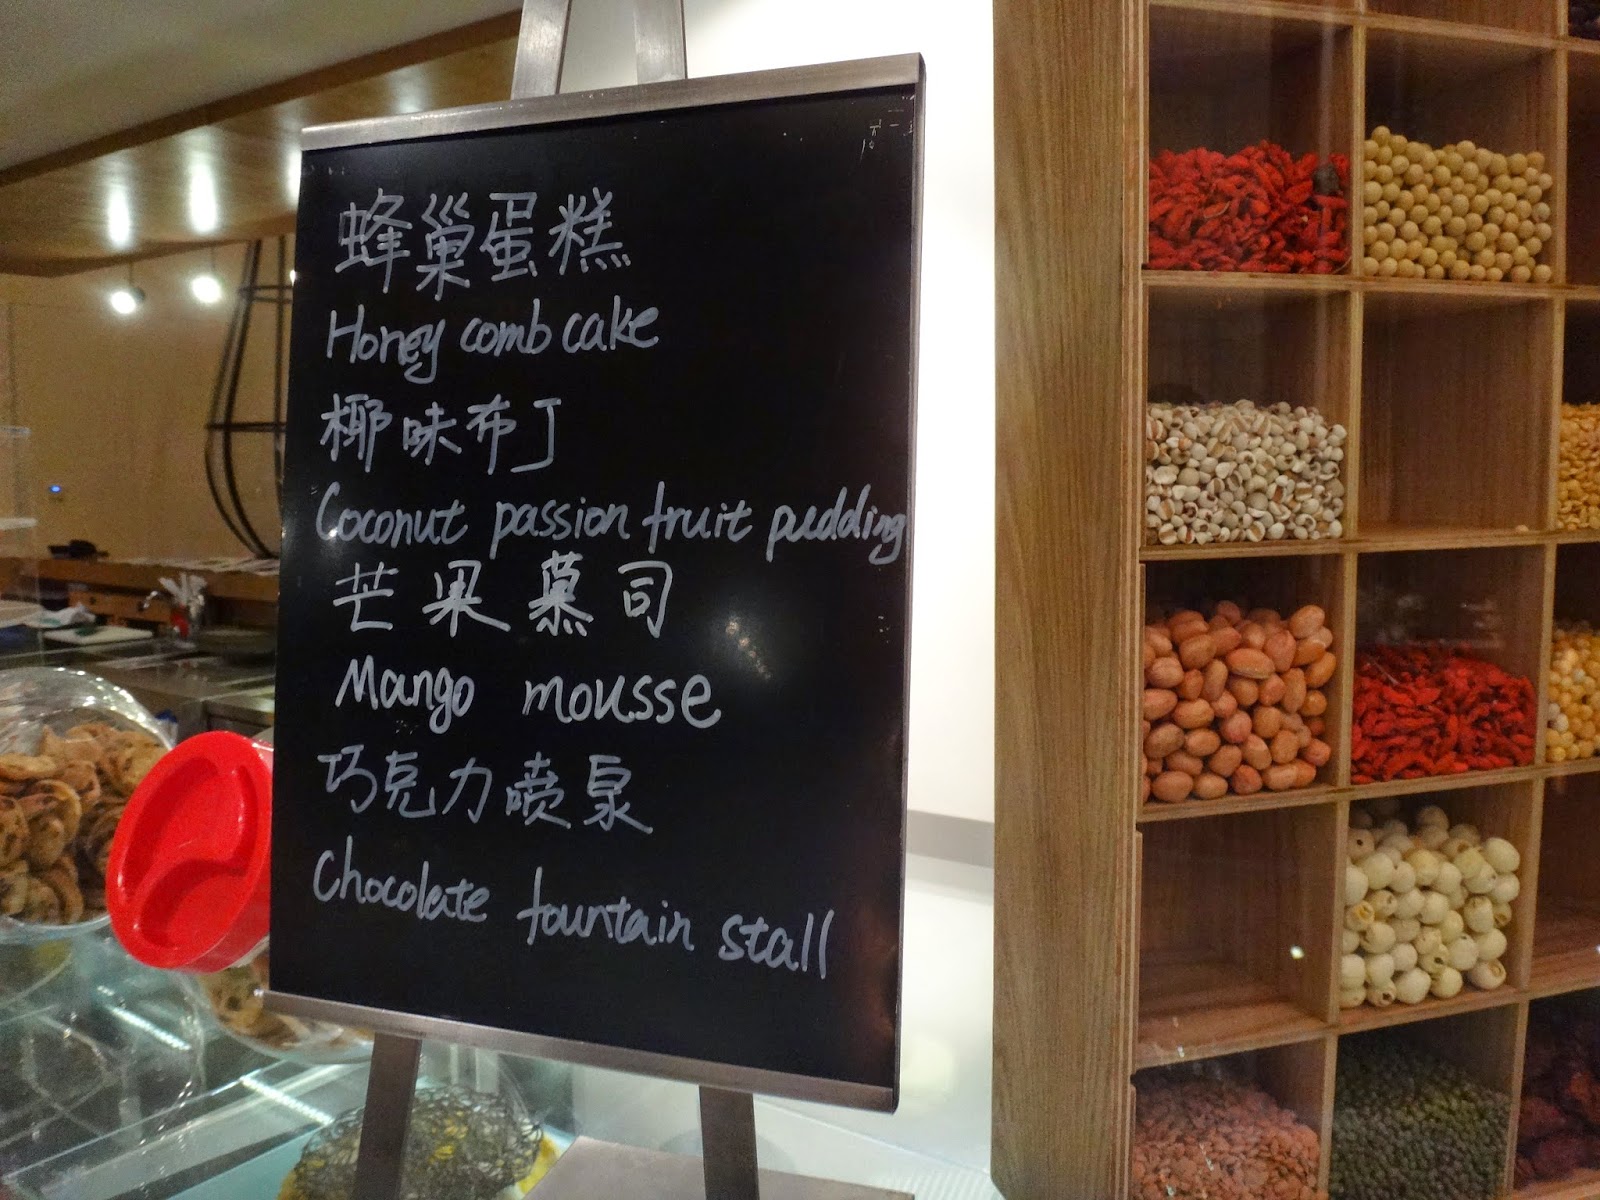 蜂巢蛋糕
Honey comb cake
椰味布丁
Coconut passion fruit pudding
芒果慕司
Mango mousse
巧克力喷泉
Chocolate fountain stall